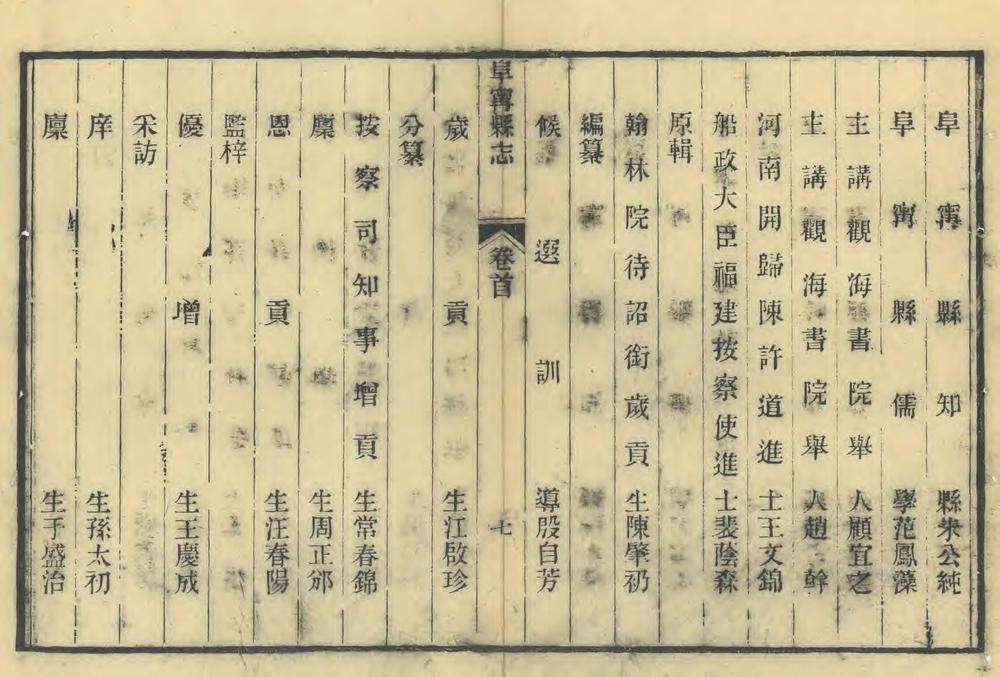 阜甯縣知縣朱公純
阜甯縣儒學范鳳藻
主講觀海書院舉人顧宜之
主講觀海書院舉人趙 幹
河南開歸陳許道進士王文錦
船政大臣福建按察使進士裴蔭森
原輯
翰林院待詔銜歲貢生陳肇礽
編纂
候選訓導殷自芳
阜甯縣志 卷首 七
歲貢生江啟珍
分纂
按察司知事增貢生常春錦
廩生周正邠
恩貢生汪春陽
監梓
優增生王慶成
采訪
庠生孫太初
廩生于盛治